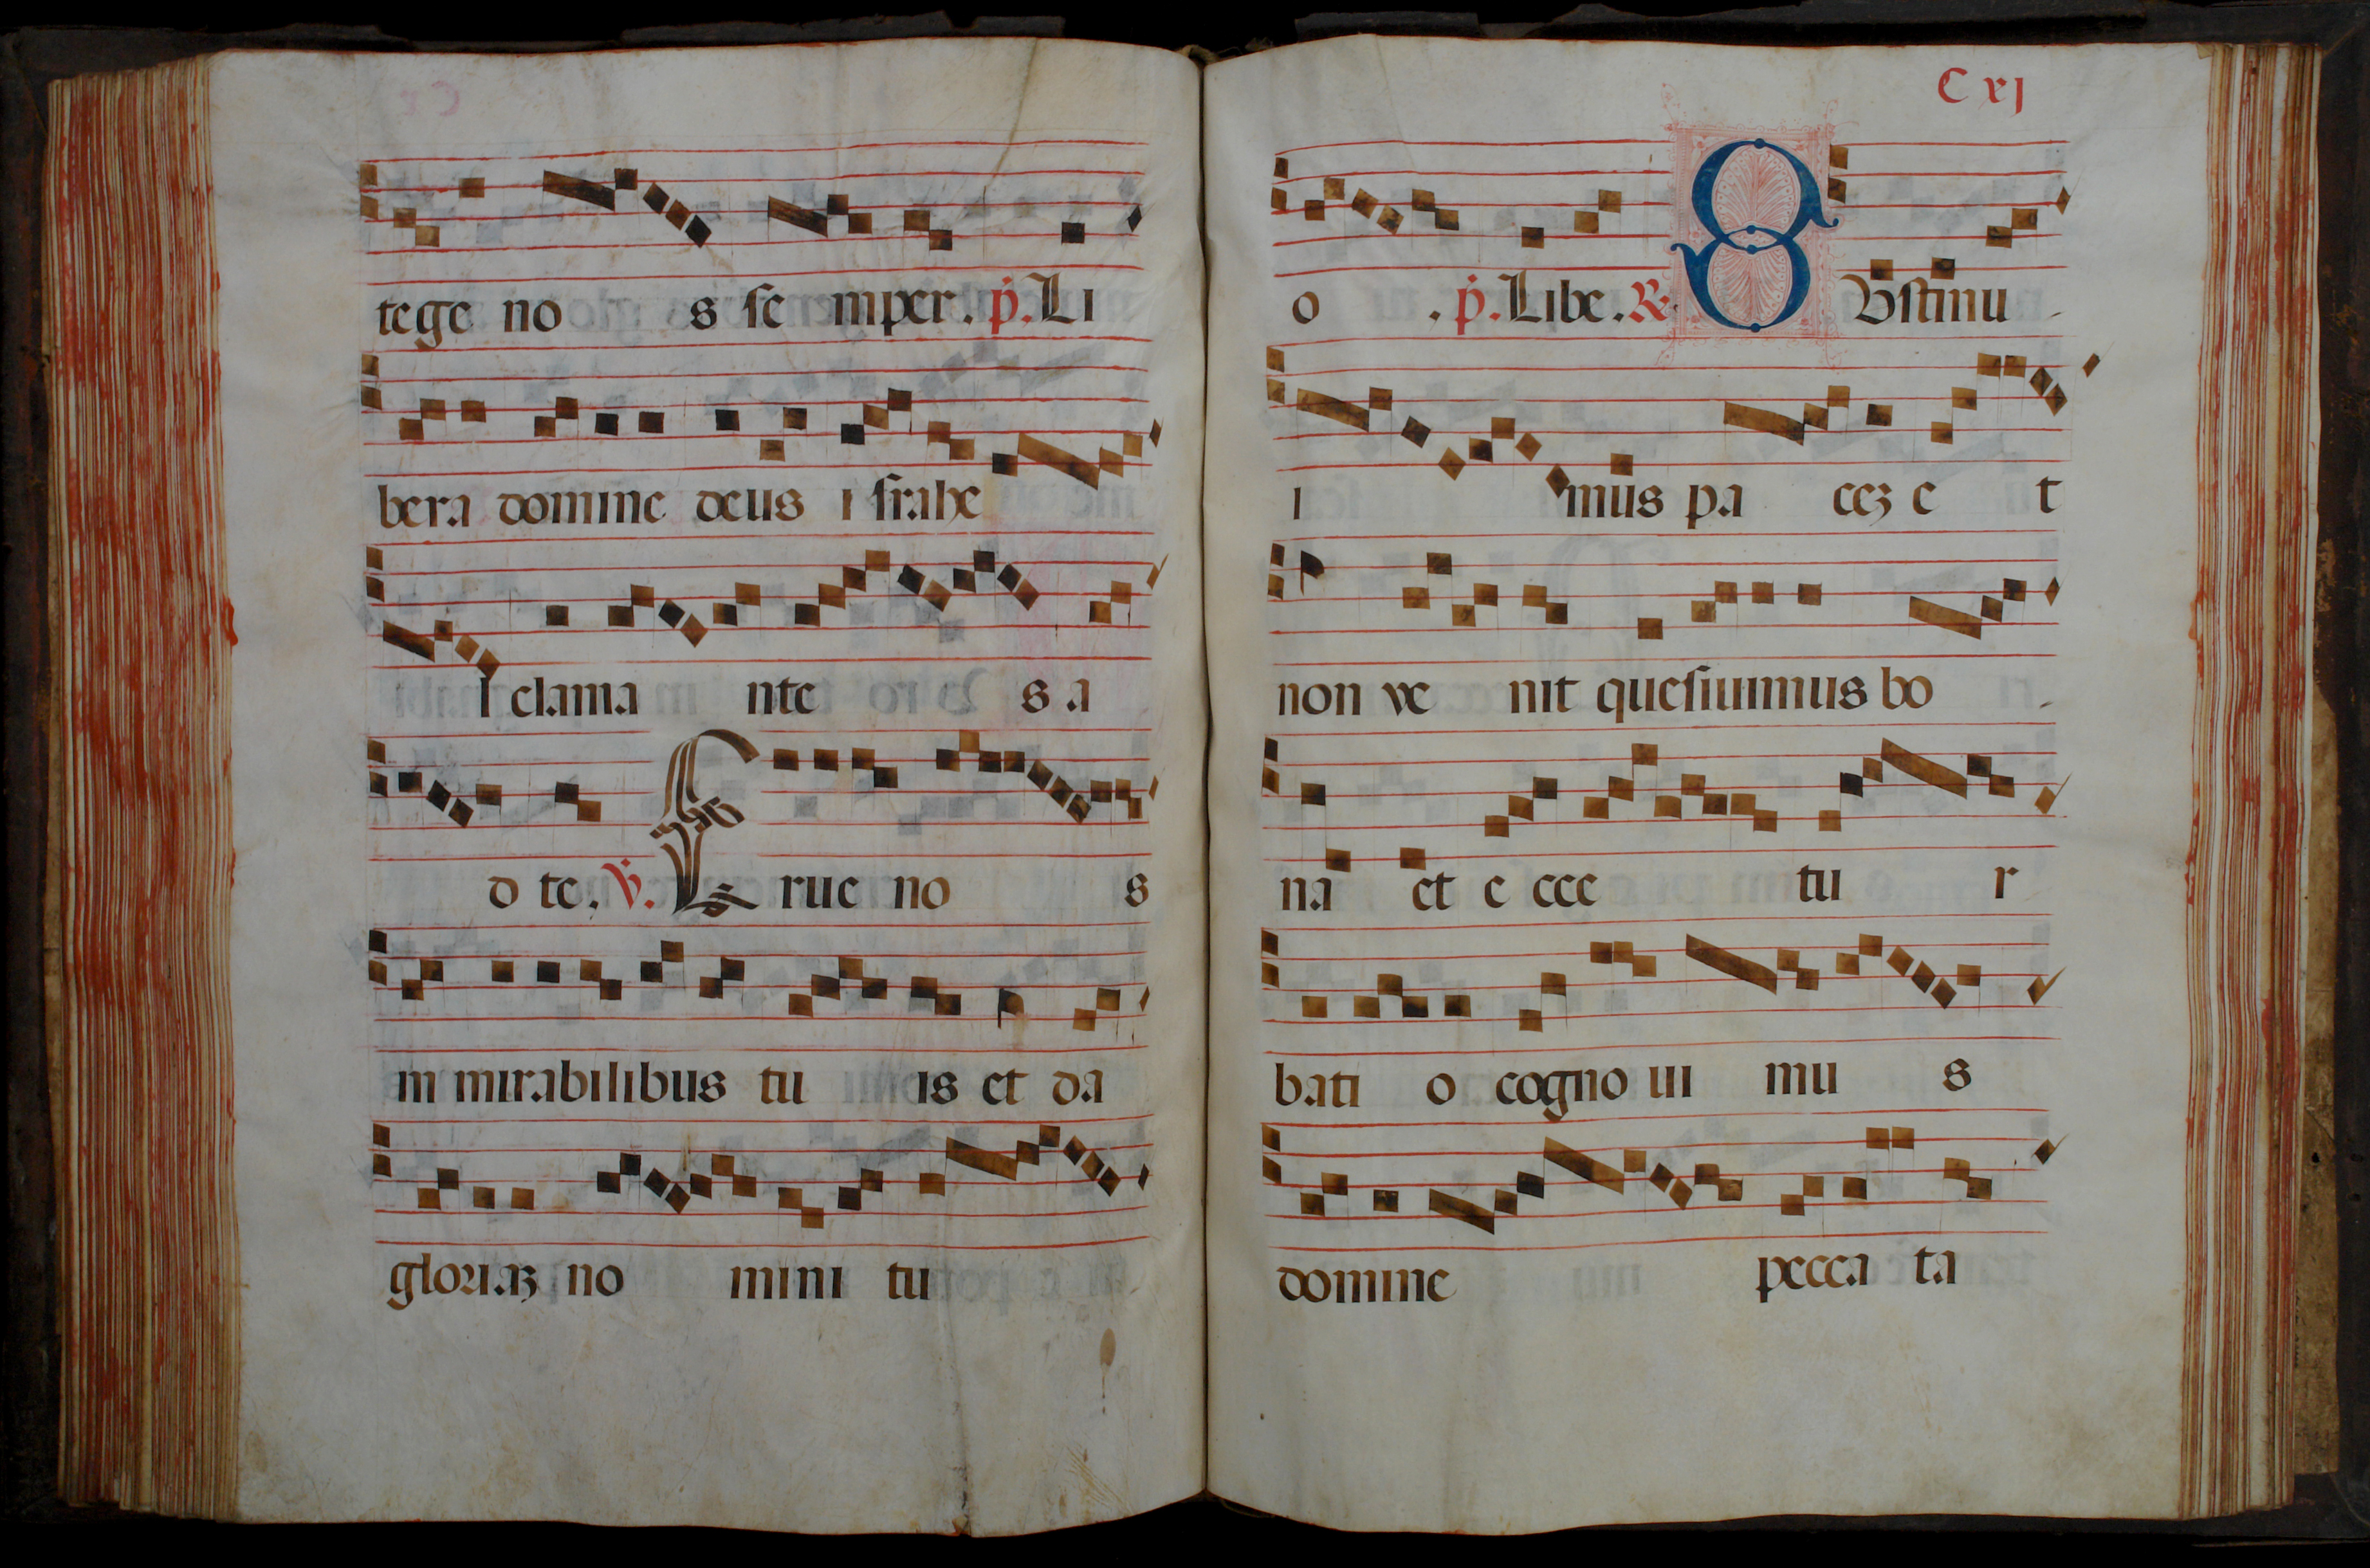 tege no s se mper. p. Li
bera domine deus i srahe
l clama nte s a
d te. V. Erue no s
in mirabilibus tu is et da
gloriaz no mini tu
C xj
o . p. Libe. R. Sustinu
i mus pa cez e t
non ve nit quesiuimus bo
na et e cce tu r
bati o cogno ui mu s
domine pecca ta